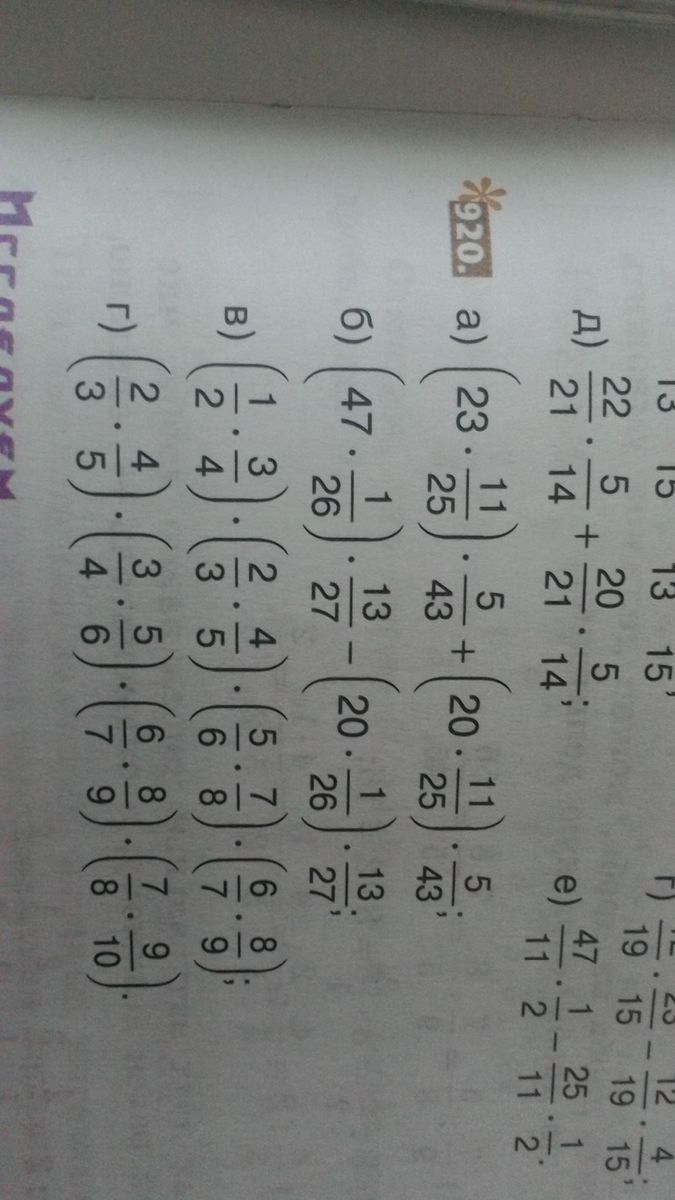 13 15 13 15,
г) 12/19 · 23/15 − 12/19 · 4/15;
д) 22/21 · 5/14 + 20/21 · 5/14;
е) 47/11 · 1/2 − 25/11 · 1/2.
*920. а) (23 · 11/25) · 5/43 + (20 · 11/25) · 5/43;
б) (47 · 1/26) · 13/27 − (20 · 1/26) · 13/27;
в) (1/2 · 3/4) · (2/3 · 4/5) · (5/6 · 7/8) · (6/7 · 8/9);
г) (2/3 · 4/5) · (3/4 · 5/6) · (6/7 · 8/9) · (7/8 · 9/10).